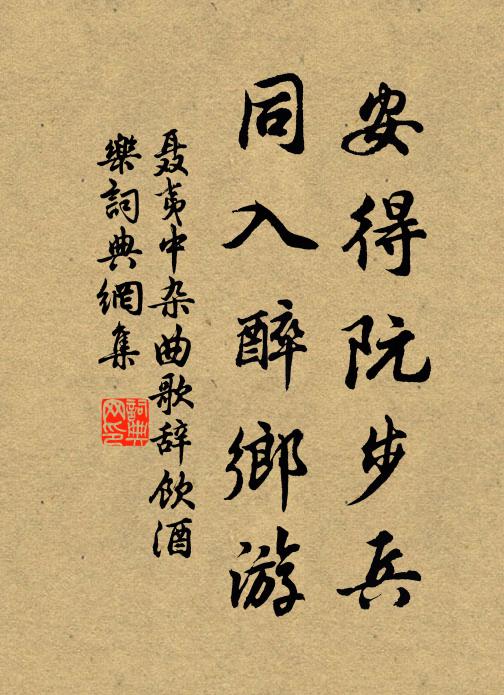 安得阮步兵
同入醉鄉游
聂夷中杂曲歌辞饮酒
樂詞典網集
詞典
网印